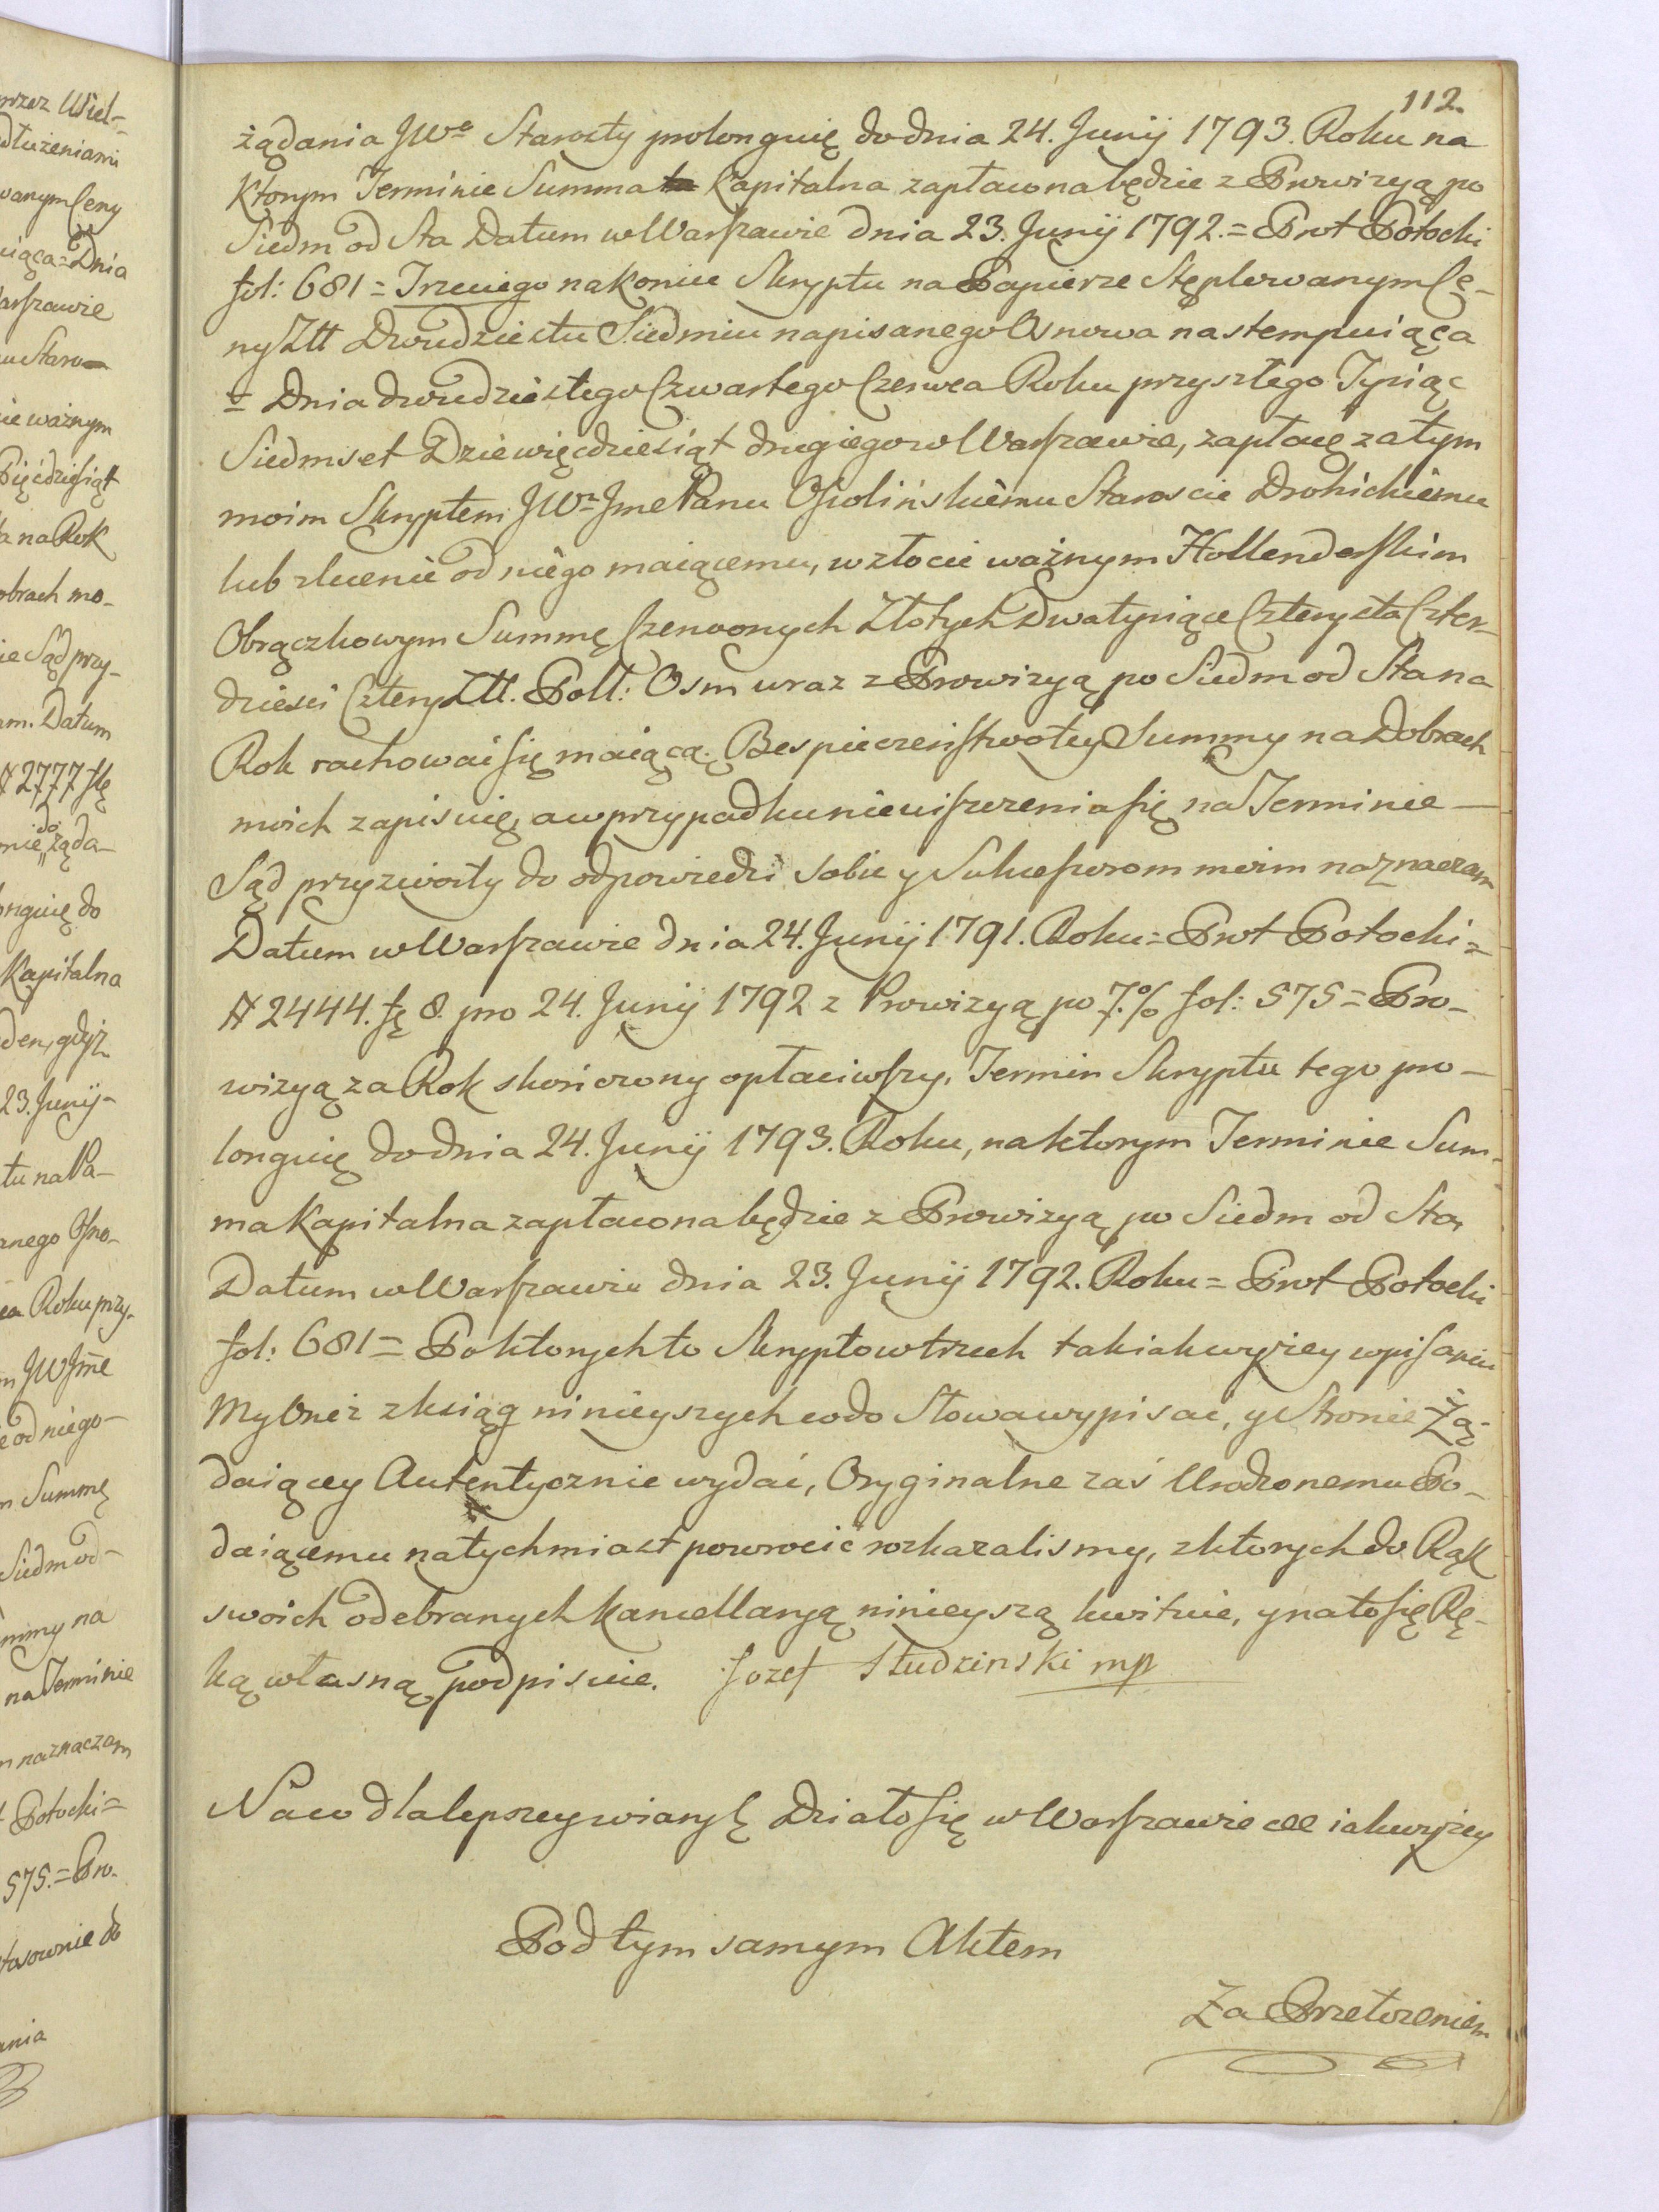 112.
żądania JWo Starosty prolonguię do dnia 24. Junij 1793. Roku na
ktorym Terminie Summa ta Kapitalna zapłacona będzie z Prowizyą po
Siedm od Sta Datum w Warszawie dnia 23. Junij 1792. = Prot Potocki
fol: 681 = Trzeciego nakoniec Skryptu na Papierze Stęplowanym Ce-
ny Ztt Dwudziestu Siedmiu napisanego Osnowa nastempuiąca
= Dnia dwudziestego Czwartego Czerwca Roku przyszłego Tysiąc
Siedmset Dziewięcdziesiąt drugiego w Warszawie, zapłacę za tym
moim Skryptem JWu Jme Panu Ossolińskiemu Staroscie Drohickiemu
lub zlecenie od niego maiącemu, w złocie ważnym Hollenderskim
Obrączkowym Summę Czerwonych Złotych Dwa tysiące Czterysta Czter-
dziesci Cztery Ztt. Poll: Osm wraz z Prowizyą po Siedm od Sta na
Rok rachować się maiącą. Bespieczeństwo tey Summy na Dobrach
moich zapisuię, a w przypadku nieuiszczenia się na Terminie —
Sąd przyzwoity do odpowiedzi sobie y Sukcessorom moim naznaczam
Datum w Warszawie dnia 24. Junij 1791. Roku = Prot Potocki =
# 2444. fę 8. pro 24. Junij 1792 z Prowizyą po 7.% fol: 575 = Pro-
wizyą za Rok skończony opłaciwszy, Termin Skryptu tego pro-
longuię do dnia 24. Junij 1793. Roku, na ktorym Terminie Sum-
ma Kapitalna zapłacona będzie z Prowizyą po Siedm od Sta,
Datum w Warszawie dnia 23. Junij 1792. Roku = Prot Potocki
fol: 681 = Po ktorych to Skryptow trzech tak iak wyżey wpisaniu
My Oneż z ksiąg ninieyszych co do słowa wypisac, y Stronie Żą-
daiącey Autentycznie wydać, Oryginalne zaś Urodzonemu Po-
daiącemu natychmiast powrocić rozkazalismy, z ktorych do Rąk
swoich odebranych Kancellaryą ninieyszą kwituie, y na to się Rę-
ką własną podpisuie. Jozef Studzinski mp
Na co dla lepszey wiary Działo się w Warszawie iak wyżey
Pod tym samym Aktem
Za Przełożeniem
przez Wiel-
dłużeniami
wanym Ceny
uiąca = Dnia
arszawie
Staro
ie ważnym
Pięćdziesiąt
a na Rok
obrach mo-
ie Sąd przy-
am. Datum
# 2777 fłę
mie do żąda-
onguię do
Kapitalna
den, gdyż
23. Junij-
tu na Pa-
anego Osno-
Roku przy-
m JW Jme
e od niego-
m Summę
Siedm od-
mmy na
na Terminie
m naznaczam
t Potocki =
575. = Pro-
tosownie do
ania